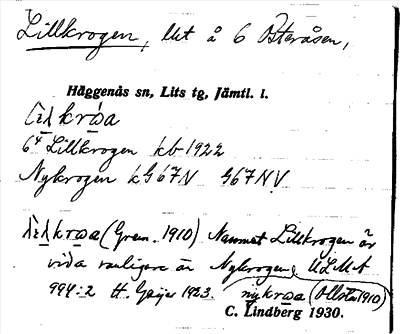 Lillkrogen, litt å 6 Österåsen,
Häggenås sn, Lits tg, Jämtl. l.
6⁴ Lillkrogen kb 1922
Nykrogen k G67N G67NV
(Grem. 1910) Namnet Lillkrogen är
vida vanligare än Nykrogen, ULMA
994:2 H. Geijer 1923. (Ollsta 1910)
C. Lindberg 1930.